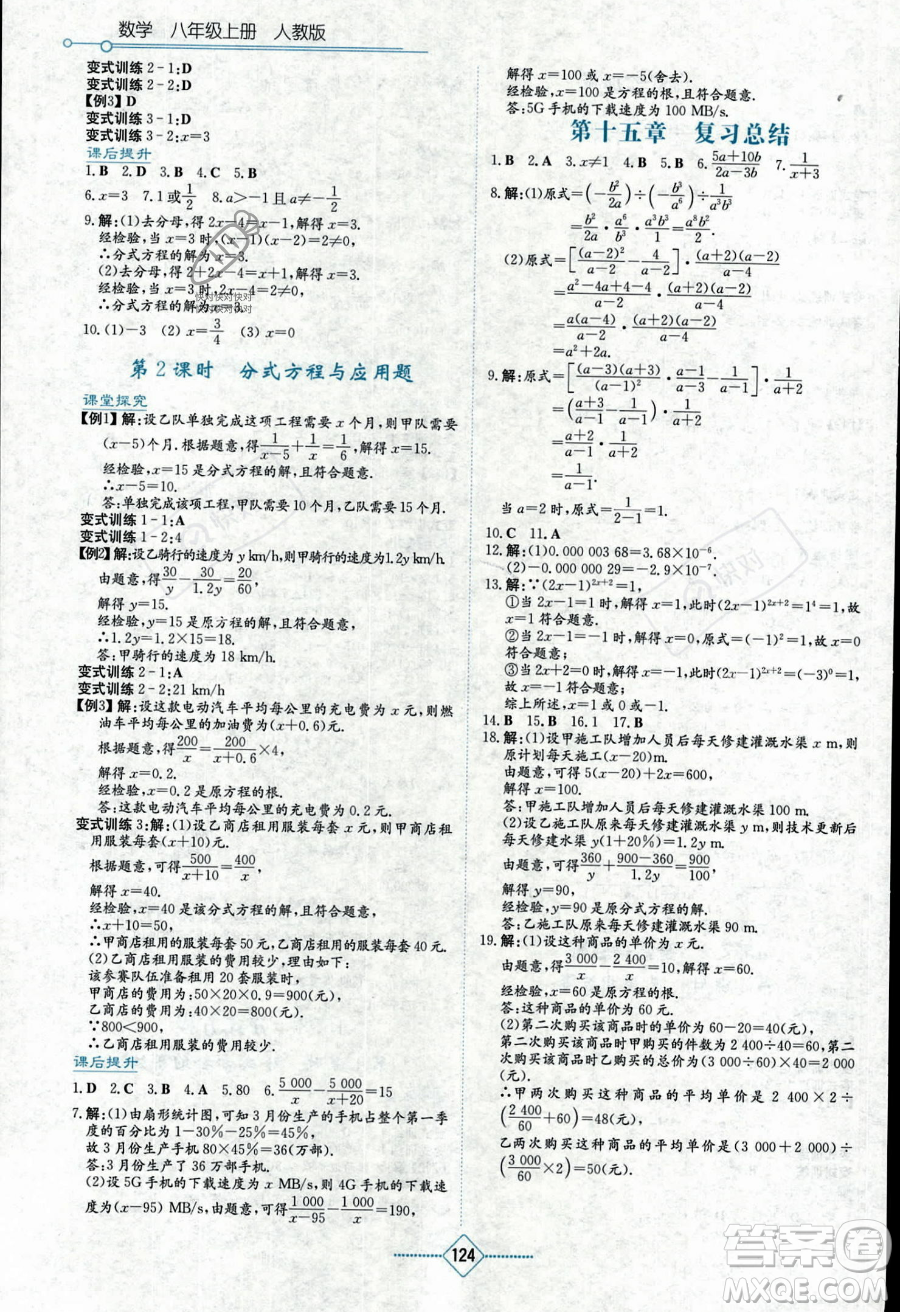 数学 八年级上册 人教版
变式训练2-1:D
变式训练2-2:D
【例3】D
变式训练3-1:D
变式训练3-2:x=3
课后提升
1.B 2.D 3.B 4.C 5.B
6.x=3 7.1或1/2 8.a>-1且a≠-1/2
9.解:(1)去分母,得2x-4=x-1,解得x=3.
经检验,当x=3时,(x-1)(x-2)=2≠0,
∴分式方程的解为x=3.
(2)去分母,得2+2x-4=x-1,解得x=3.
∴分式方程的解为x=3.
10.(1)-3 (2)x=3/4 (3)x=0
第2课时 分式方程与应用题
课堂探究
【例1】解:设乙队单独完成这项工程需要x个月,则甲队需要
(x-5)个月.根据题意,得1/(x-5)+1/x=1/6,解得x=15.
经检验,x=15是分式方程的解,且符合题意.
∴x-5=10.
答:单独完成该项工程,甲队需要10个月,乙队需要15个月.
变式训练1-1:A
变式训练1-2:4
【例2】解:设乙骑行的速度为y km/h,则甲骑行的速度为1.2y km/h.
由题意,得30/y-30/1.20=20/60,
解得y=15.
经检验,y=15是原方程的解,且符合题意,
∴1.2y=1.2×15=18.
答:甲骑行的速度为18 km/h.
变式训练2-1:A
变式训练2-2:21 km/h
【例3】解:设这款电动汽车平均每公里的充电费为x元,则燃
油车平均每公里的加油费为(x+0.6)元.
根据题意,得200/x=200/(x+0.6)×4,
解得x=0.2.
经检验,x=0.2是原方程的根.
答:这款电动汽车平均每公里的充电费为0.2元.
变式训练3:解:(1)设乙商店租用服装每套x元,则甲商店
租用服装每套(x+10)元.
根据题意,得500/(x+10)=400/x,
解得x=40.
经检验,x=40是该分式方程的解,且符合题意,
∴x+10=50,
∴甲商店租用的服装每套50元,乙商店租用的服装每套40元.
(2)乙商店租用服装的费用较少.理由如下:
该参赛队伍准备租用20套服装时,
甲商店的费用为:50×20×0.9=900(元),
乙商店的费用为:40×20=800(元),
∵800<900,
∴乙商店租用服装的费用较少.
课后提升
1.D 2.C 3.B 4.A 5.80 6.5 000/x-5 000/(x+20)=15
7.解:(1)由扇形统计图,可知3月份生产的手机占整个第一季
度的百分比为1-30%-25%=45%,
故3月份生产的手机为80×45%=36(万部).
答:3月份生产了36万部手机.
(2)设5G手机的下载速度为x MB/s,则4G手机的下载速
度为(x-95) MB/s,由题意,得1 000/(x-95)-1 000/x=190,
解得x=100或x=-5(舍去).
经检验,x=100是方程的根,且符合题意.
答:5G手机的下载速度为100 MB/s.
第十五章 复习总结
1.B 2.A 3.x≠1 4.B 5.B 6.(5a+10b)/(2a-3b) 7.1/(x+3)
8.解:(1)原式=(-b²/2a)÷(-b³/a⁶)÷1/(a³b³)
=b²/2a·a⁶/b³·a³b³/1=a⁸b²/2.
(2)原式=[(a-2)²/(a-2)-4/(a-2)]·(a+2)(a-2)/(a-4)
=(a²-4a+4-4)/(a-2)·(a+2)(a-2)/(a-4)
=a(a-4)/(a-2)·(a+2)(a-2)/(a-4)
=a(a+2)=a²+2a.
9.解:原式=[(a-3)(a+3)/(a-3)²-3/(a-3)]·(a-3)/a(a-1)
=((a+3)/(a-3)-3/(a-3))·(a-3)/a(a-1)
=a/(a-3)·(a-3)/a(a-1)
=1/(a-1).
当a=2时,原式=1/(2-1)=1.
10.C 11.A
12.解:(1)0.000 003 68=3.68×10⁻⁶.
(2)-0.000 000 29=-2.9×10⁻⁷.
13.解:∵(2x-1)²ˣ⁺²=1,
①当2x-1=1时,解得x=1,此时(2x-1)²ˣ⁺²=1⁴=1,
故x=1符合题意.
②当2x-1=-1时,解得x=0,原式=(-1)²=1,故x=0
符合题意;
③当2x+2=0时,解得x=-1,此时(2x-1)²ˣ⁺²=(-3)⁰=1,
故x=-1符合题意.
综上所述,x=1或0或-1.
14.B 15.B 16.1 17.B
18.解:(1)设甲施工队增加人员后每天修建灌溉水渠x m,则
原计划每天施工(x-20) m.
由题意,得5(x-20)+2x=600,
解得x=100.
答:甲施工队增加人员后每天修建灌溉水渠100 m.
(2)设乙施工队原来每天修建灌溉水渠y m,则技术更新
后每天修建灌溉水渠y(1+20%)=1.2y(m).
由题意,可得360/y+(900-360)/1.2y=900/100,
解得y=90.
经检验,y=90是原分式方程的解.
答:乙施工队原来每天修建灌溉水渠90 m.
19.解:(1)设这种商品的单价为x元.
由题意,得3 000/x-2 400/x=10,解得x=60.
经检验,x=60是原方程的根.
答:这种商品的单价为60元.
(2)第二次购买该商品时的单价为60-20=40(元),
第二次购买该商品时甲购买的件数为2 400÷40=60
(件),第二次购买该商品时乙购买的总价为(3 000÷60)×40=
2 000(元),
∴甲两次购买这种商品的平均单价是2 400×2÷
(2 400/60+60)=48(元),
乙两次购买这种商品的平均单价是(3 000+2 000)÷
(3 000/60×2)=50(元).
124
答案卷
MXQE.COM